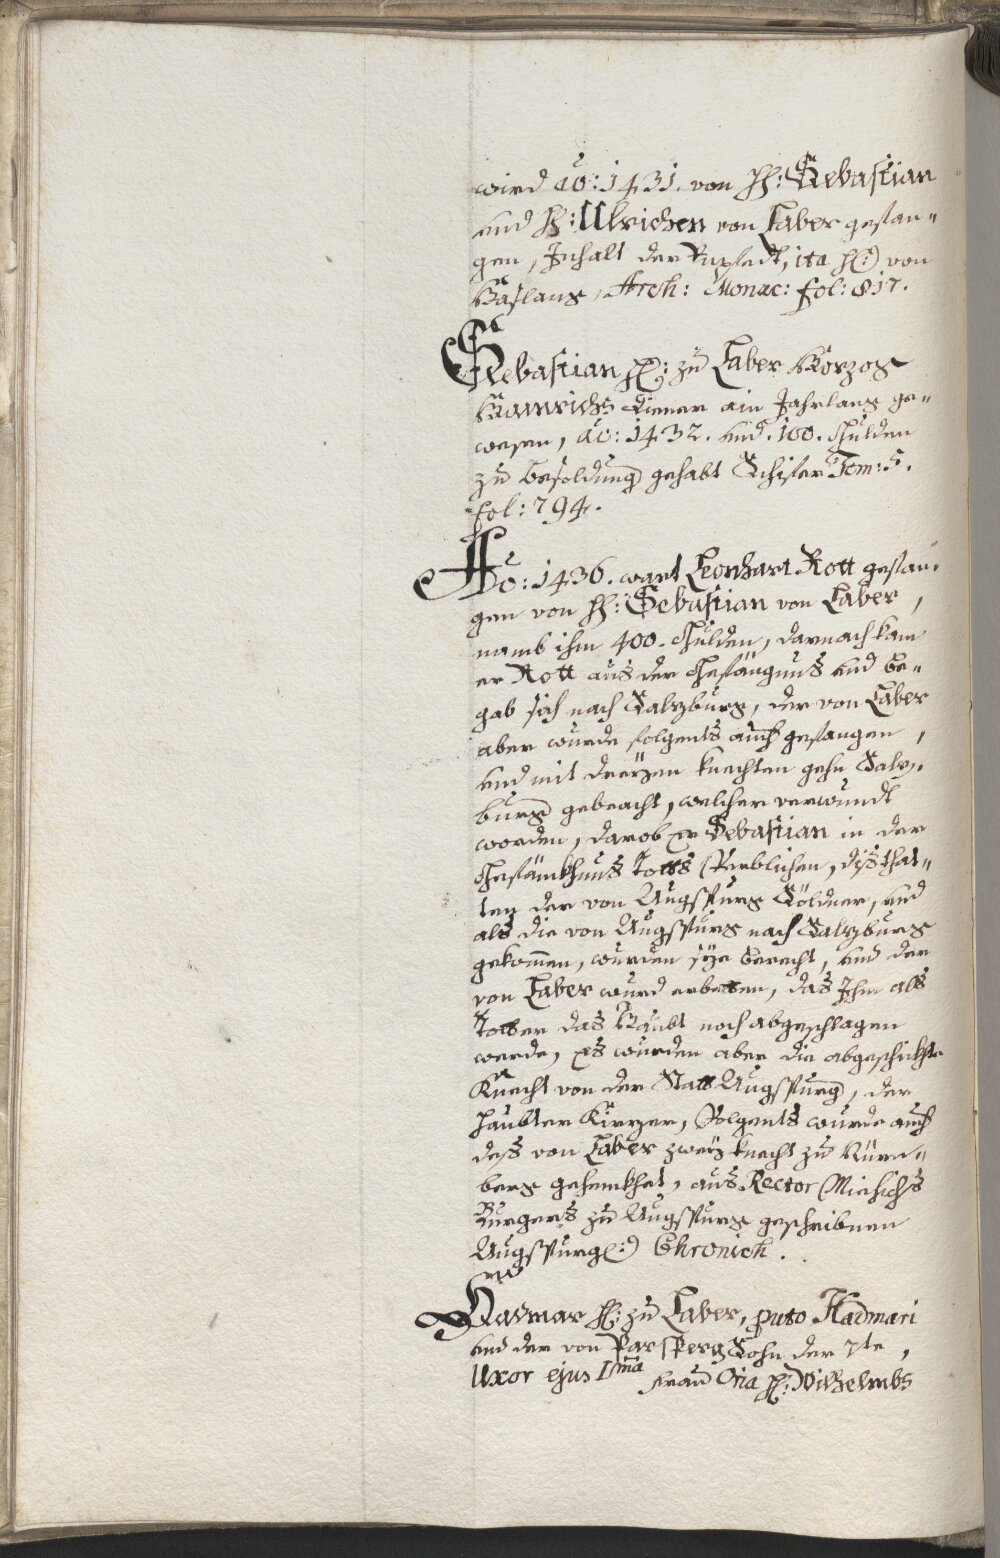 wird ao: 1431. von H: Sebastian
und H: Ulrichen von Laber gefan-
gen, Inhalt der ita H:) von
Haslang, Arch: Monac: fol: 817.
Sebastian H: zu Laber Herzog
Hainrichs Diener ain Jahrlang ge-
wesen, ao: 1432. und 100. Gulden
zu besoldung gehabt Schifer Tom: 5.
fol: 794.
Ao: 1436. wart Leonhart Rott gefan-
gen von H: Sebastian von Laber,
namb ihm 400. Gulden, darnach kam
er Rott aus der Gefängnus und be-
gab sich nach Salzburg, der von Laber
aber wurde folgents auch gefangen,
und mit dreyzen knechten gehn Salz-
burg gebracht, welcher verwundt
worden, darob er Sebastian in der
Gefänkhnus Totts verblichen, dis that-
ten der von Augspurg Söldner, und
als die von Augspurg nach Salzburg
gekommen, wurden sye berecht, und der
von Laber wurd erbetten, das Ihm als
Totter das Haubt noch abgeschlagen
werde, es wurden aber die abgeschikhte
Knecht von der Statt Augspurg, der
haubter Kürzer, Volgents wurde auch
dess von Laber zwey knecht zu Nürn-
berg gehenkhet, aus Rector Miehlichs
Burgers zu Augspurg geschribnen
Augspurg(:) Chronich.
Hadmar H: zu Laber, puto Hadmari
und der von Parsperg Sohn der 7te,
Uxor ejus 1ma Frau Ona H: Wilhelmbs